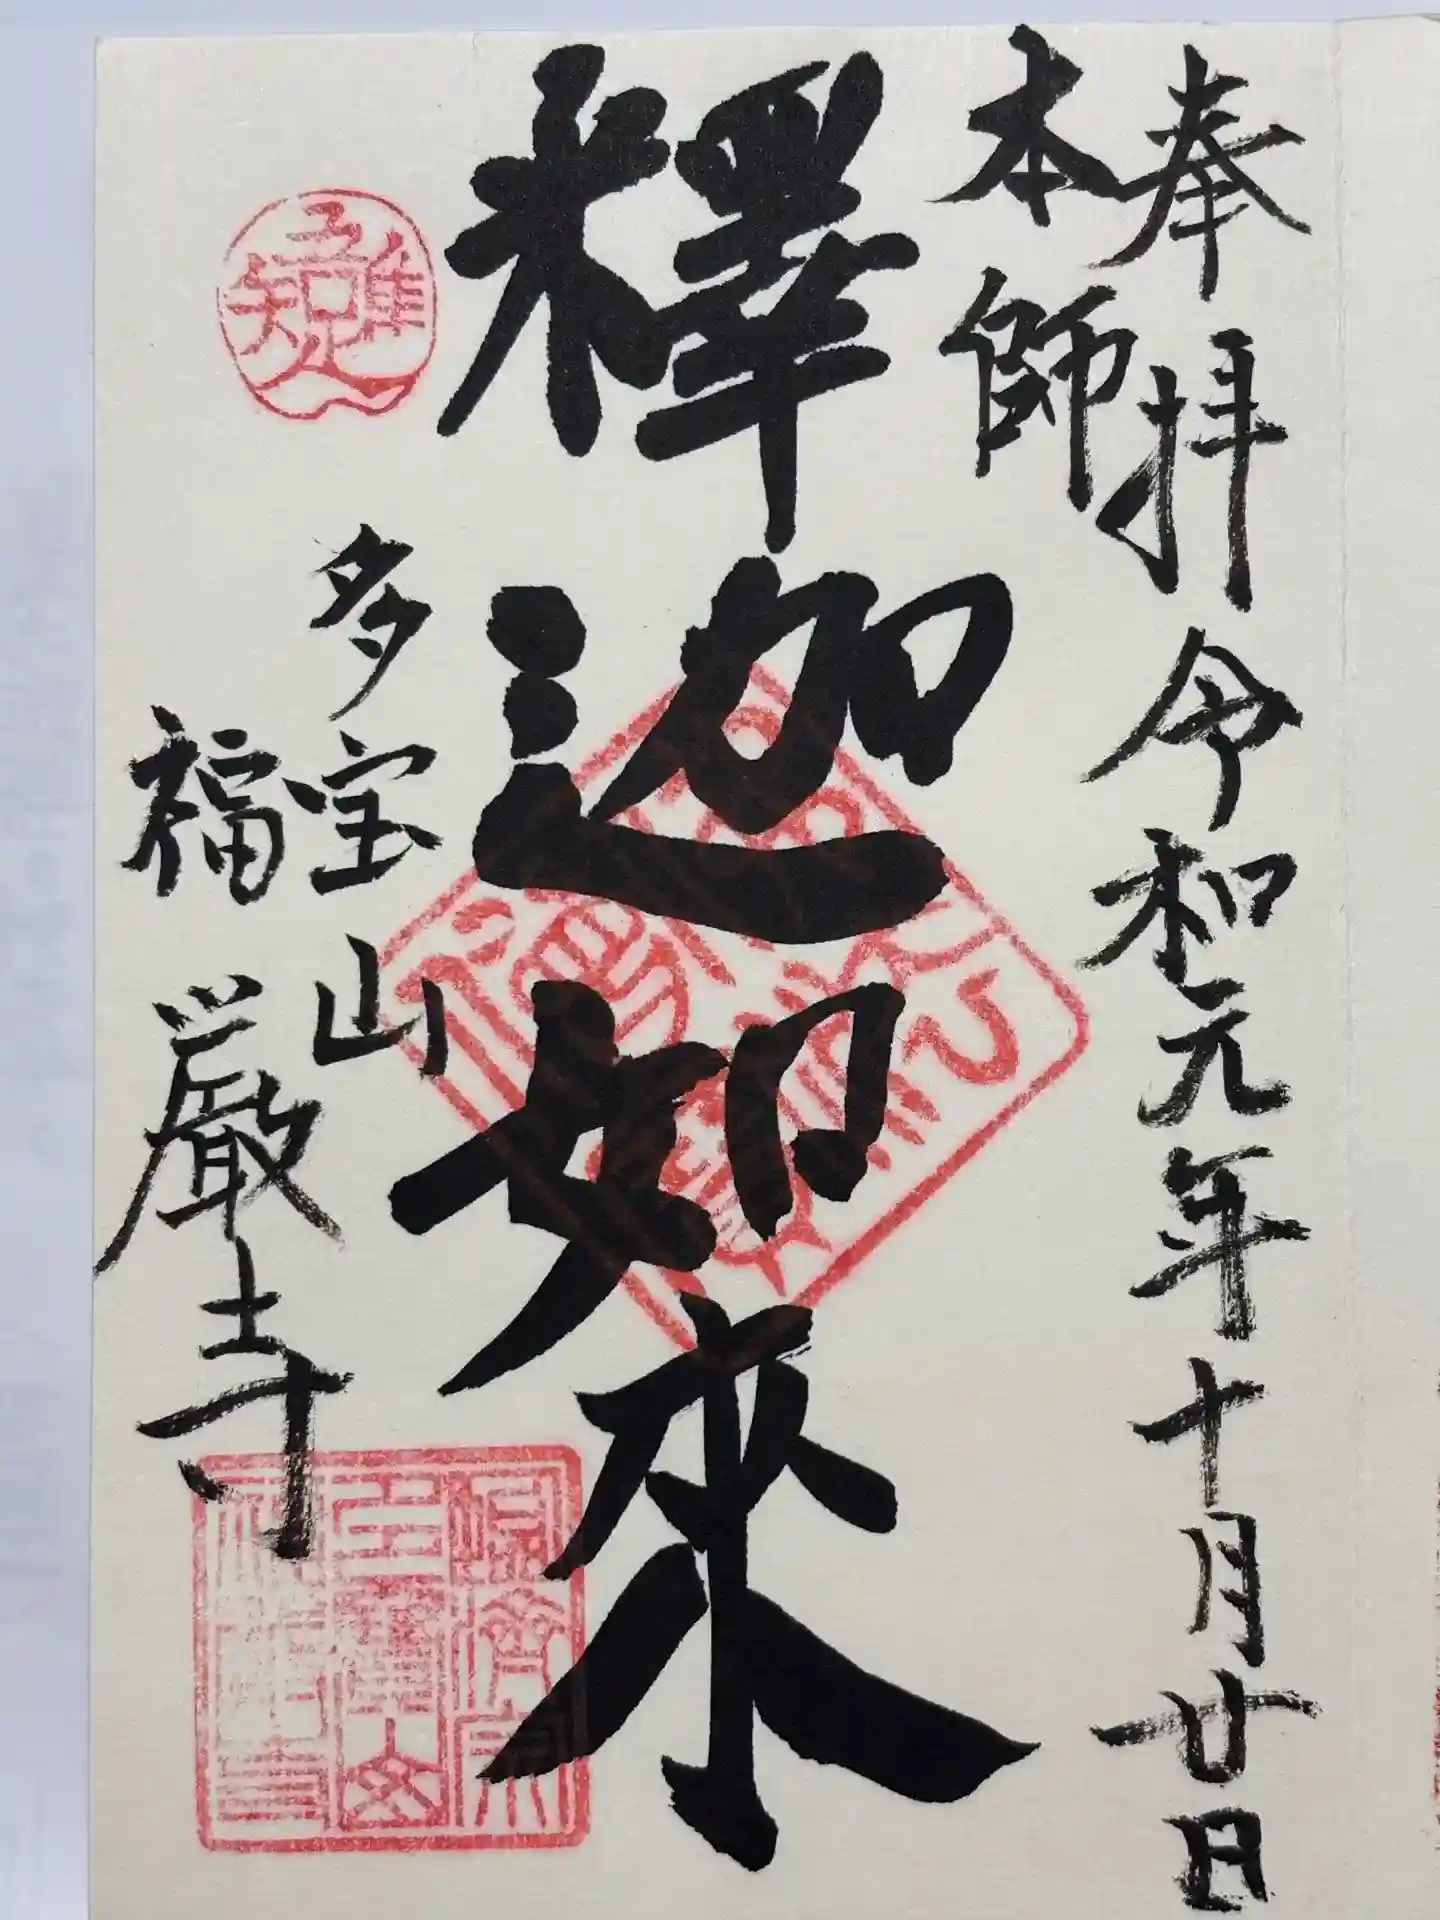 奉拝 令和元年十月廿日
本師
釋迦如來
多宝山
福巌寺
吾唯知足